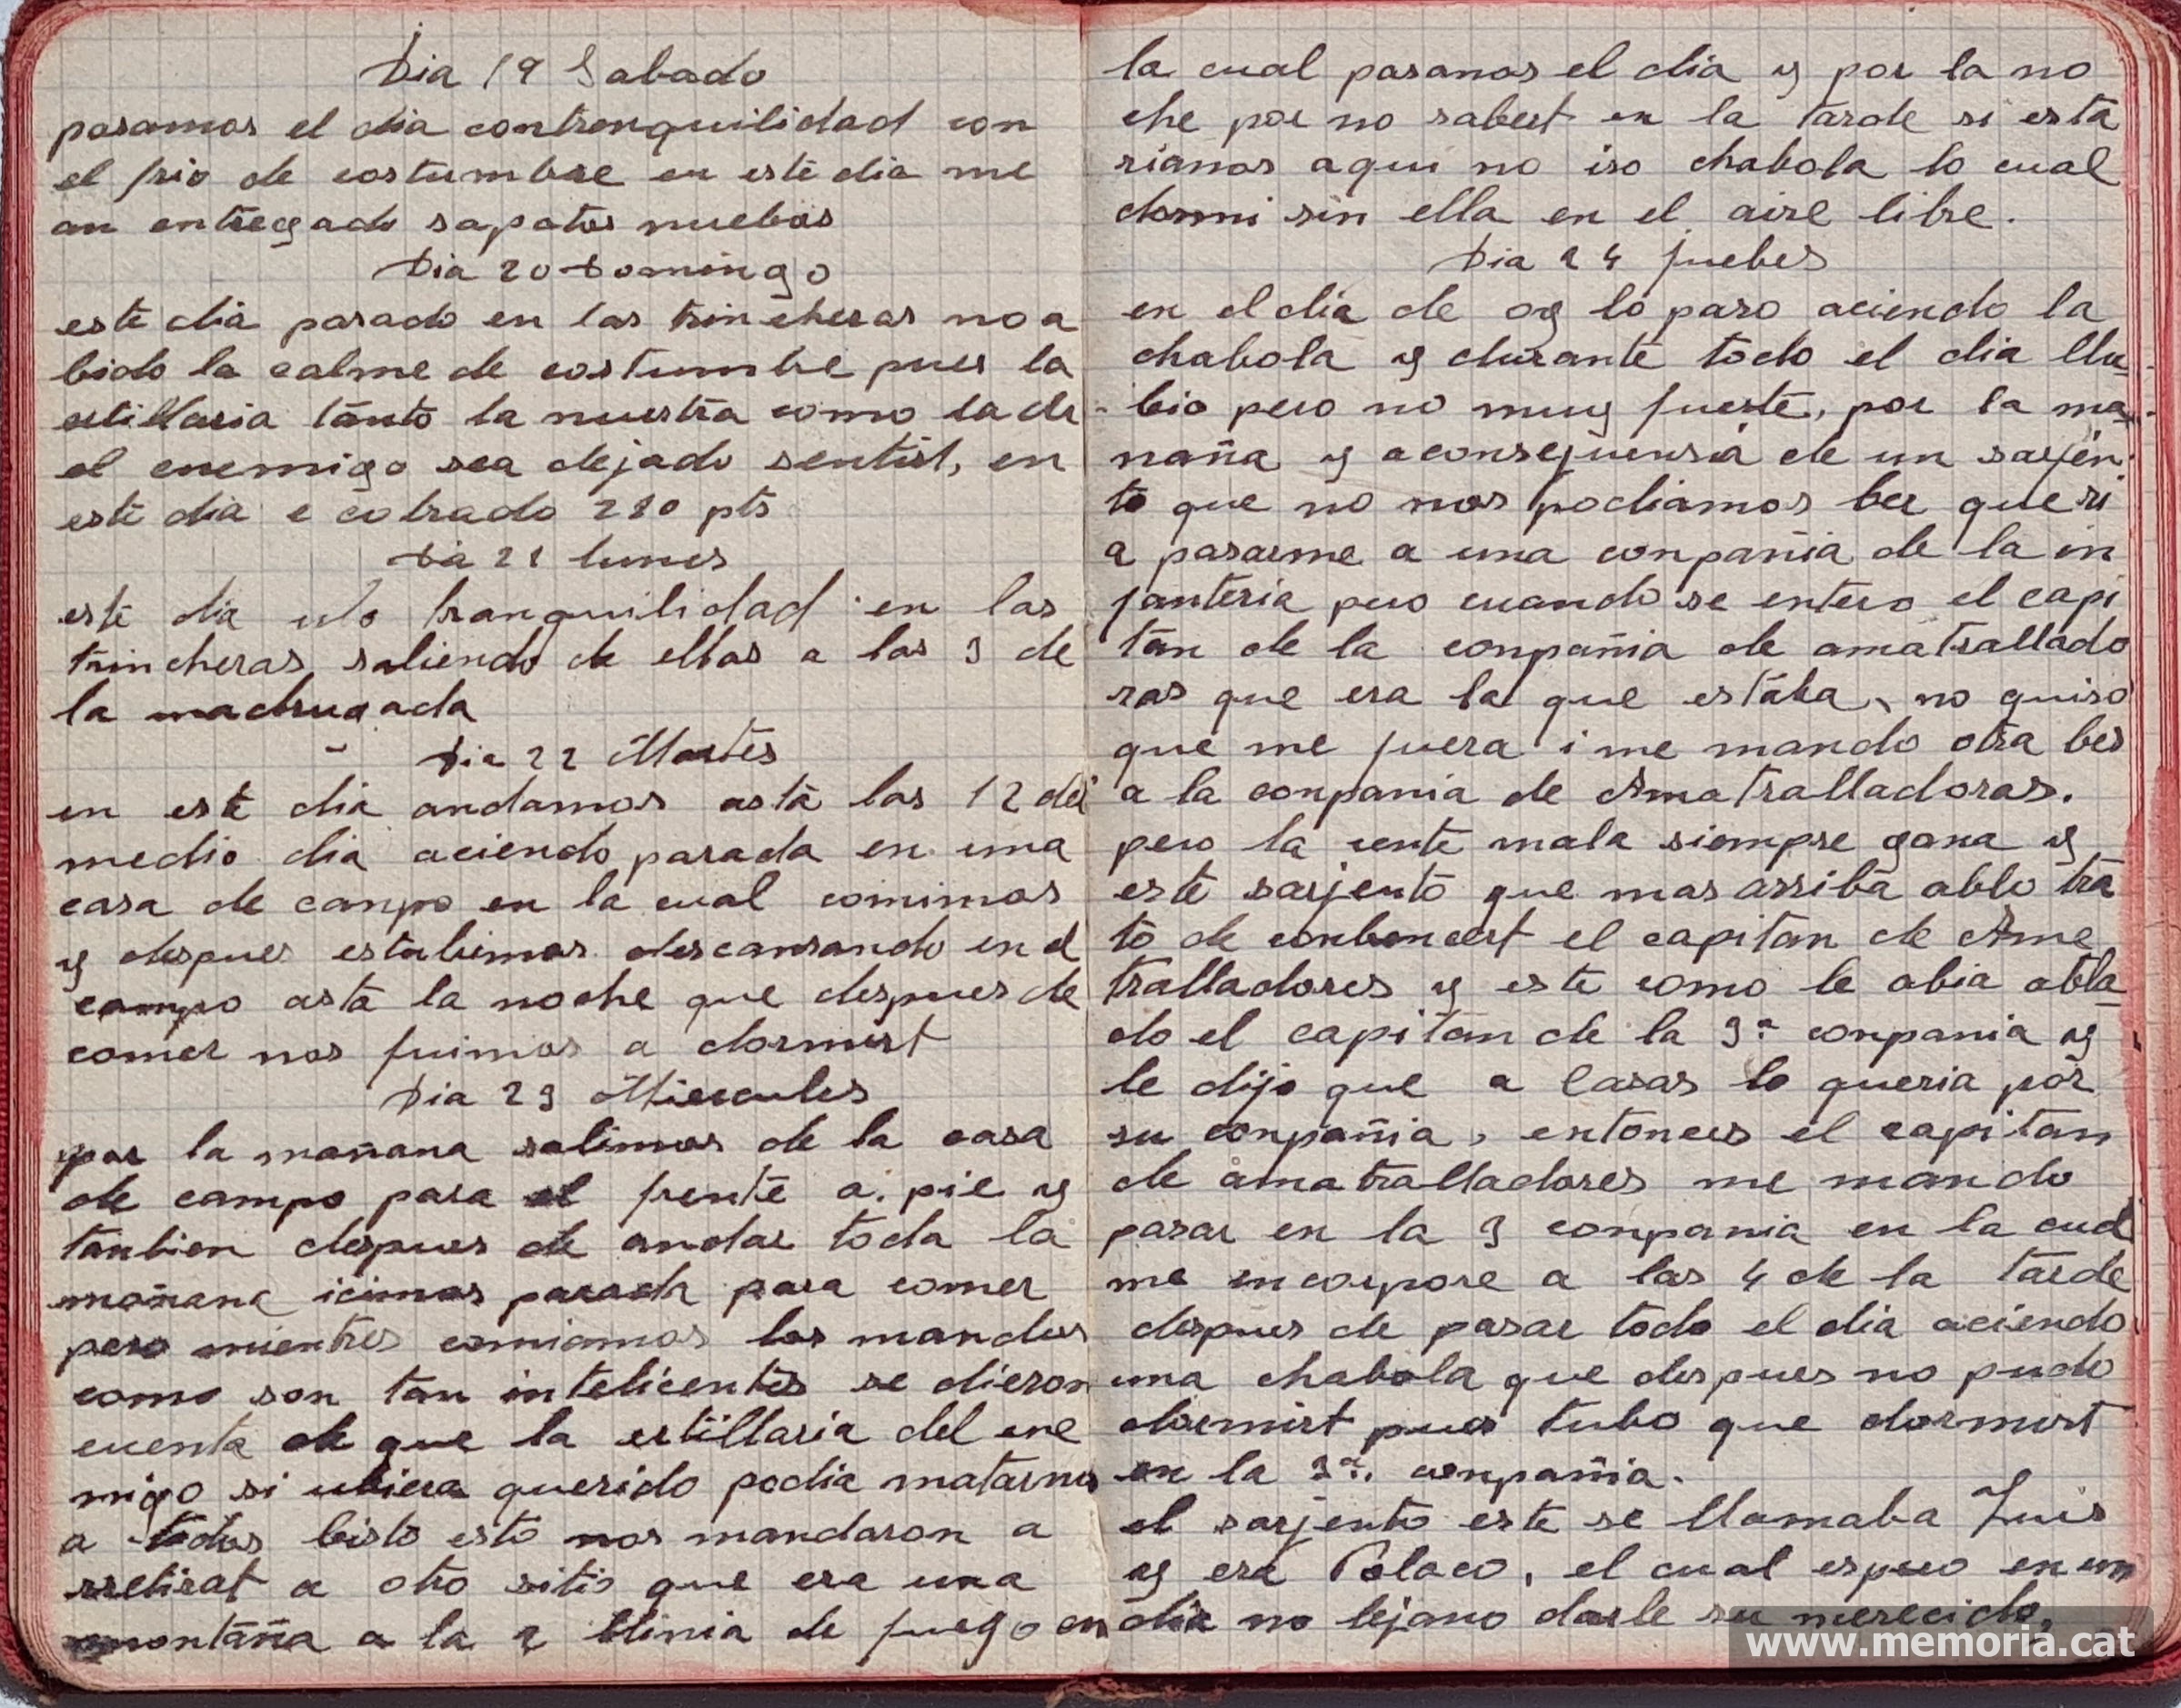 Dia 19 Sabado
pasamos el dia contranquilidad con
el frio de costumbre en este dia me
an entregado sapatos nuebos
Dia 20 Domingo
este dia pasado en las trincheras no a
bido la calme de costumbre pues la
artillaria tanto la nuestra como la de
el enemigo sea dejado sentirt, en
este dia e cobrado 280 pts
Dia 21 lunes
este dia ubo tranquilidad en las
trincheras saliendo de ellas a las 3 de
la madrugada
Dia 22 Martes
en este dia andamos asta las 12 del
medio dia aciendo parada en una
casa de canpo en la cual comimos
y despues estubimos descansando en el
campo asta la noche que despues de
comer nos fuimos a dormirt
Dia 23 Miercules
por la mañana salimos de la casa
de campo para el frente a pie y
tanbien despues de andar toda la
mañana icimos parada para comer
pero mientres comiamos los mandos
como son tan intelicentes se dieron
cuenta de que la artillaria del ene
migo si ubiera querido podia matarnos
a todos bisto esto nos mandaron a
rretirat a otro sitio que era una
montaña a la 2 llinia de fuego en
la cual pasamos el dia y por la no
che por no sabert en la tarde si esta
riamos aqui no iso chabola lo cual
dormi sin ella en el aire libre.
Dia 24 juebes
en el dia de oy lo paso aciendo la
chabola y durante todo el dia llu-
bio pero no muy fuerte, por la ma
naña y aconsequensia de un sarjen
to que no nos podiamos ber queri
a pasarme a una conpañia de la in
fanteria pero cuando se entero el capi
tan de la conpañia de amatrallado
ras que era la que estaba, no quiso
que me fuera i me mando otra bes
a la conpania de Amatralladoras.
pero la cente mala siempre gana y
este sarjento que mas arriba ablo tra
to de conbencert el capitan de Ame
tralladores y este como le abia abla
do el capitan de la 3ª conpania y
le dijo que a Casas lo queria por
su conpañia, entonces el capitan
de amatralladores me mando
pasar en la 3 conpania en la cual
me encorpore a las 4 de la tarde
despues de pasar todo el dia aciendo
una chabola que despues no pudo
dormirt pues tubo que dormirt
en la 3ª. conpañia.
el sarjento este se llamaba Luis
y era Polaco, el cual espero en un
dia no lejano darle su merecido,
www.memoria.cat